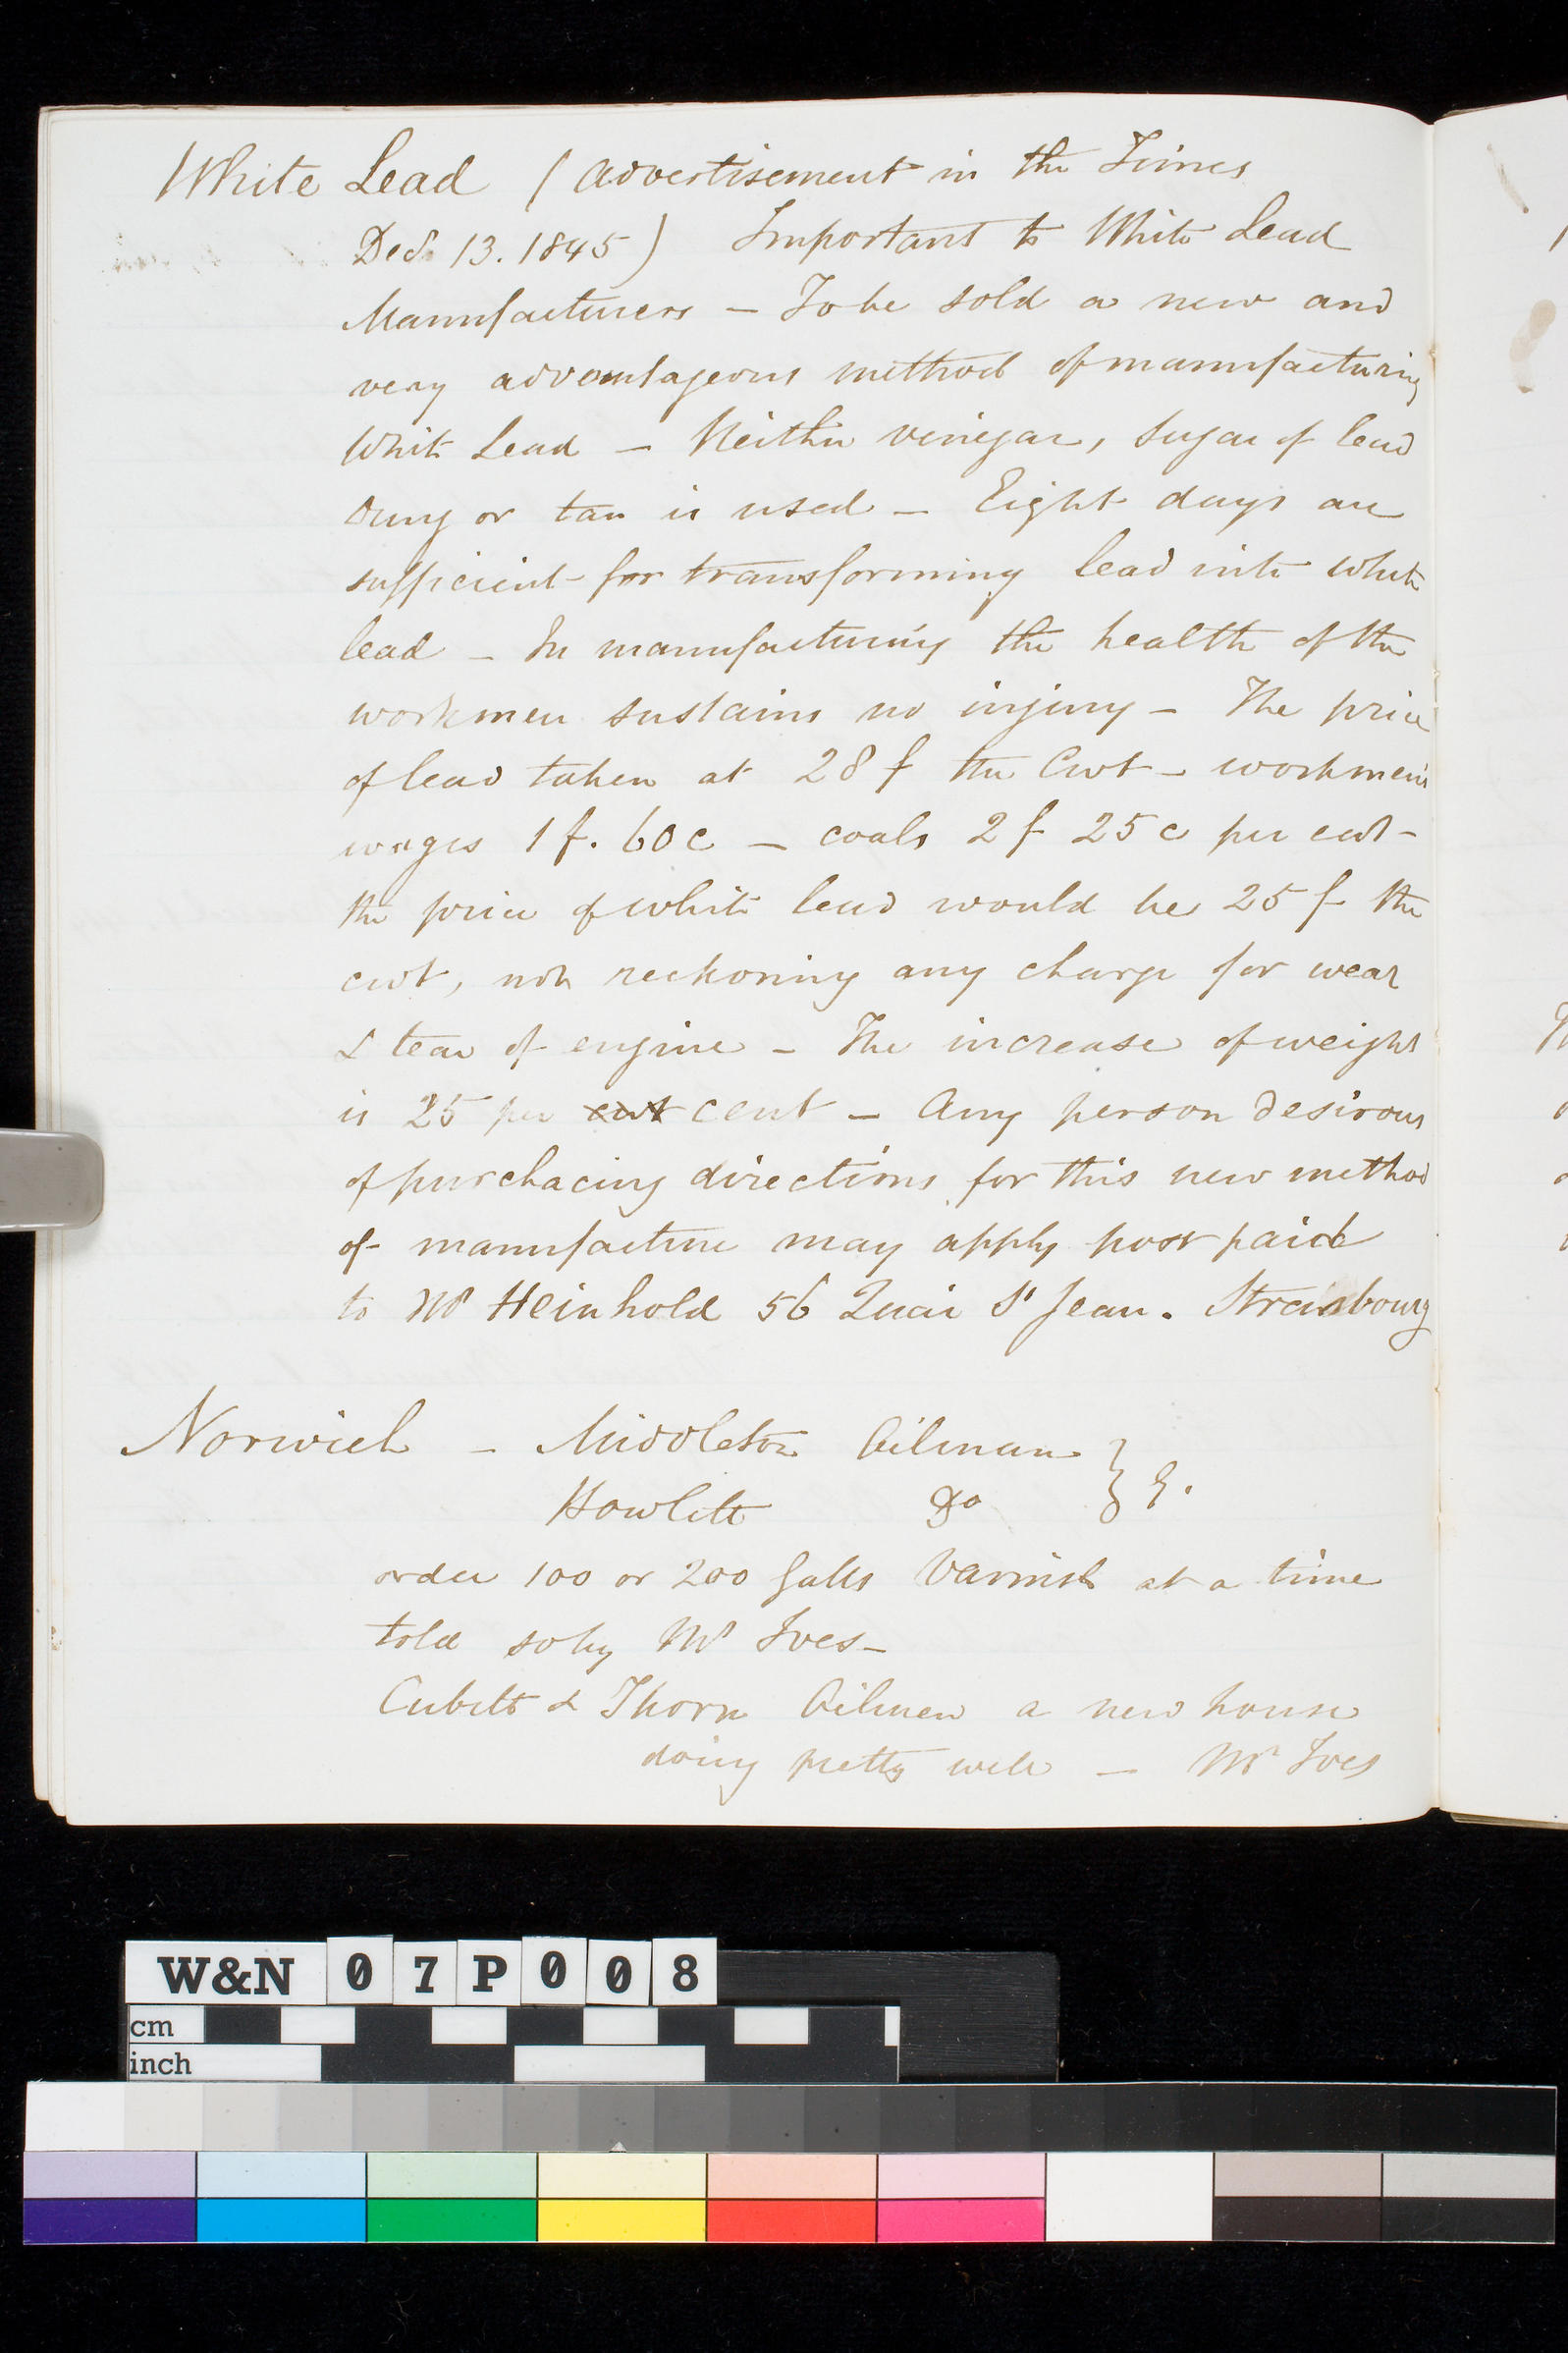 White Lead (Advertisement in the Times
Dec. 13. 1845) Important to White Lead
Manufacturers — To be sold a new and
very advantageous method of manufacturing
White Lead — Neither vinegar, sugar of lead
dung or tan is used — Eight days are
sufficient for transforming lead into white
lead — In manufacturing the health of the
workmen sustains no injury — The price
of lead taken at 28 f the Cwt — workmens
wages 1 f. 60 c — coals 2 f 25 c per cwt —
the price of white lead would be 25 f the
cwt, not reckoning any charge for wear
& tear of engine — The increase of weight
is 25 per cwt cent — Any person desirous
of purchacing directions for this new method
of manufacture may apply post paid
to Mr Heinhold 56 Quai St Jean. Strasbourg
Norwich — Middleton Oilman
Howlett Do } E.
order 100 or 200 Galls Varnish at a time
told so by Mr Ives —
Cubitt & Thorn Oilmen a new house
doing pretty well — Mr Ives
W&N 07P008
cm
inch